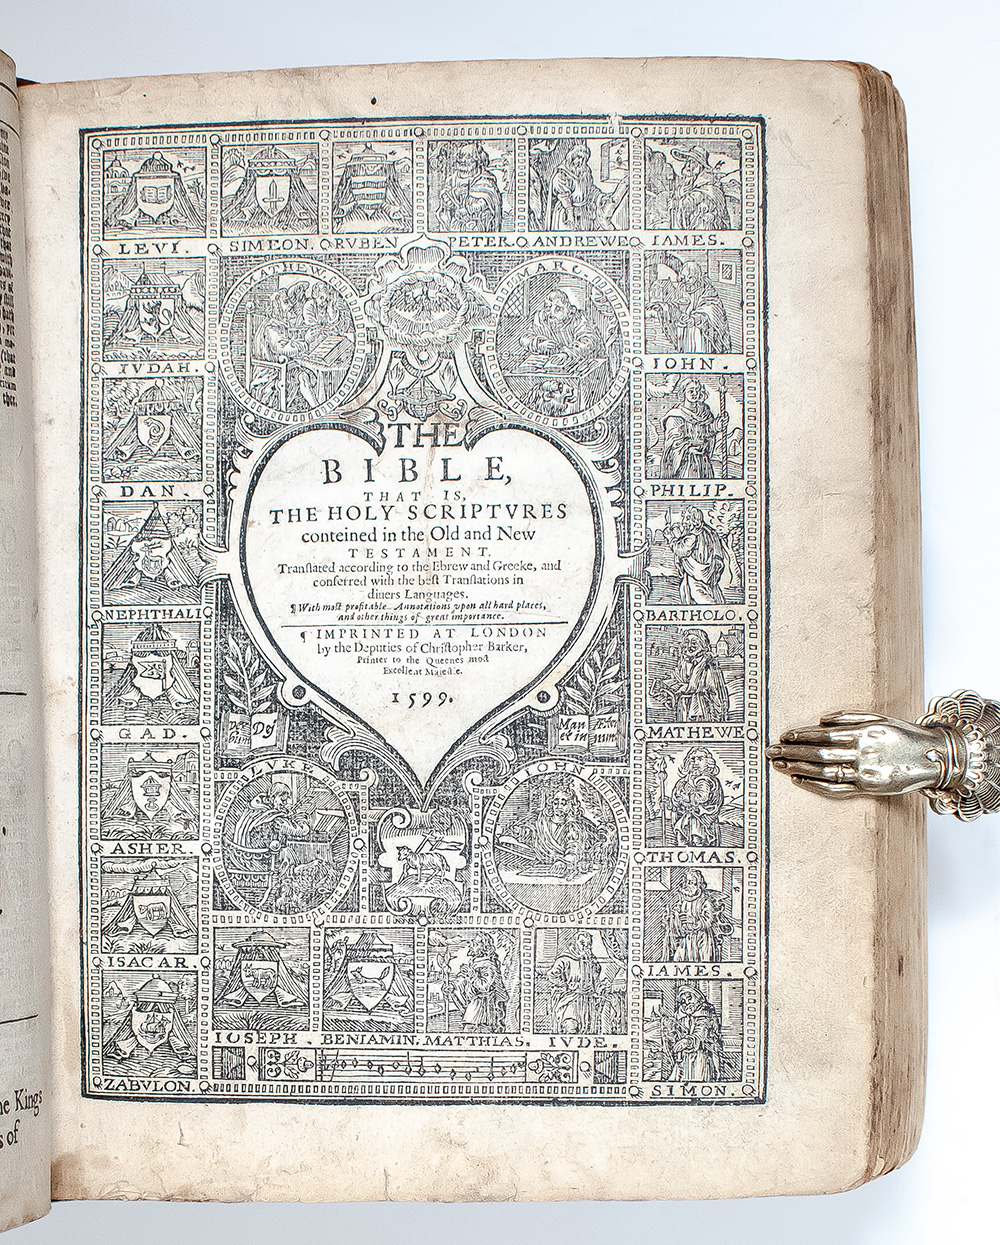 LEVI. SIMEON. RVBEN PETER. ANDREWE IAMES.
MATHEW.
MARC.
IVDAH.
IOHN.
DAN.
PHILIP.
NEPHTHALI
BARTHOLO.
GAD.
MATHEWE
ASHER.
THOMAS.
ISACAR.
IAMES.
ZABVLON.
SIMON.
THE
BIBLE,
THAT IS,
THE HOLY SCRIPTVRES
conteined in the Old and New
TESTAMENT.
Tranſlated according to the Ebrew and Greeke, and
conferred with the beſt Tranſlations in
diuers Languages.
¶ With moſt profitable Annotations vpon all hard places,
and other things of great importance.
¶ IMPRINTED AT LONDON
by the Deputies of Chriſtopher Barker,
Printer to the Queenes moſt
Excellent Maieſtie.
1599.
Dei
Man
et in
LVKE
IOHN
IOSEPH. BENIAMIN. MATTHIAS. IVDE.
the.
he Kings
s of